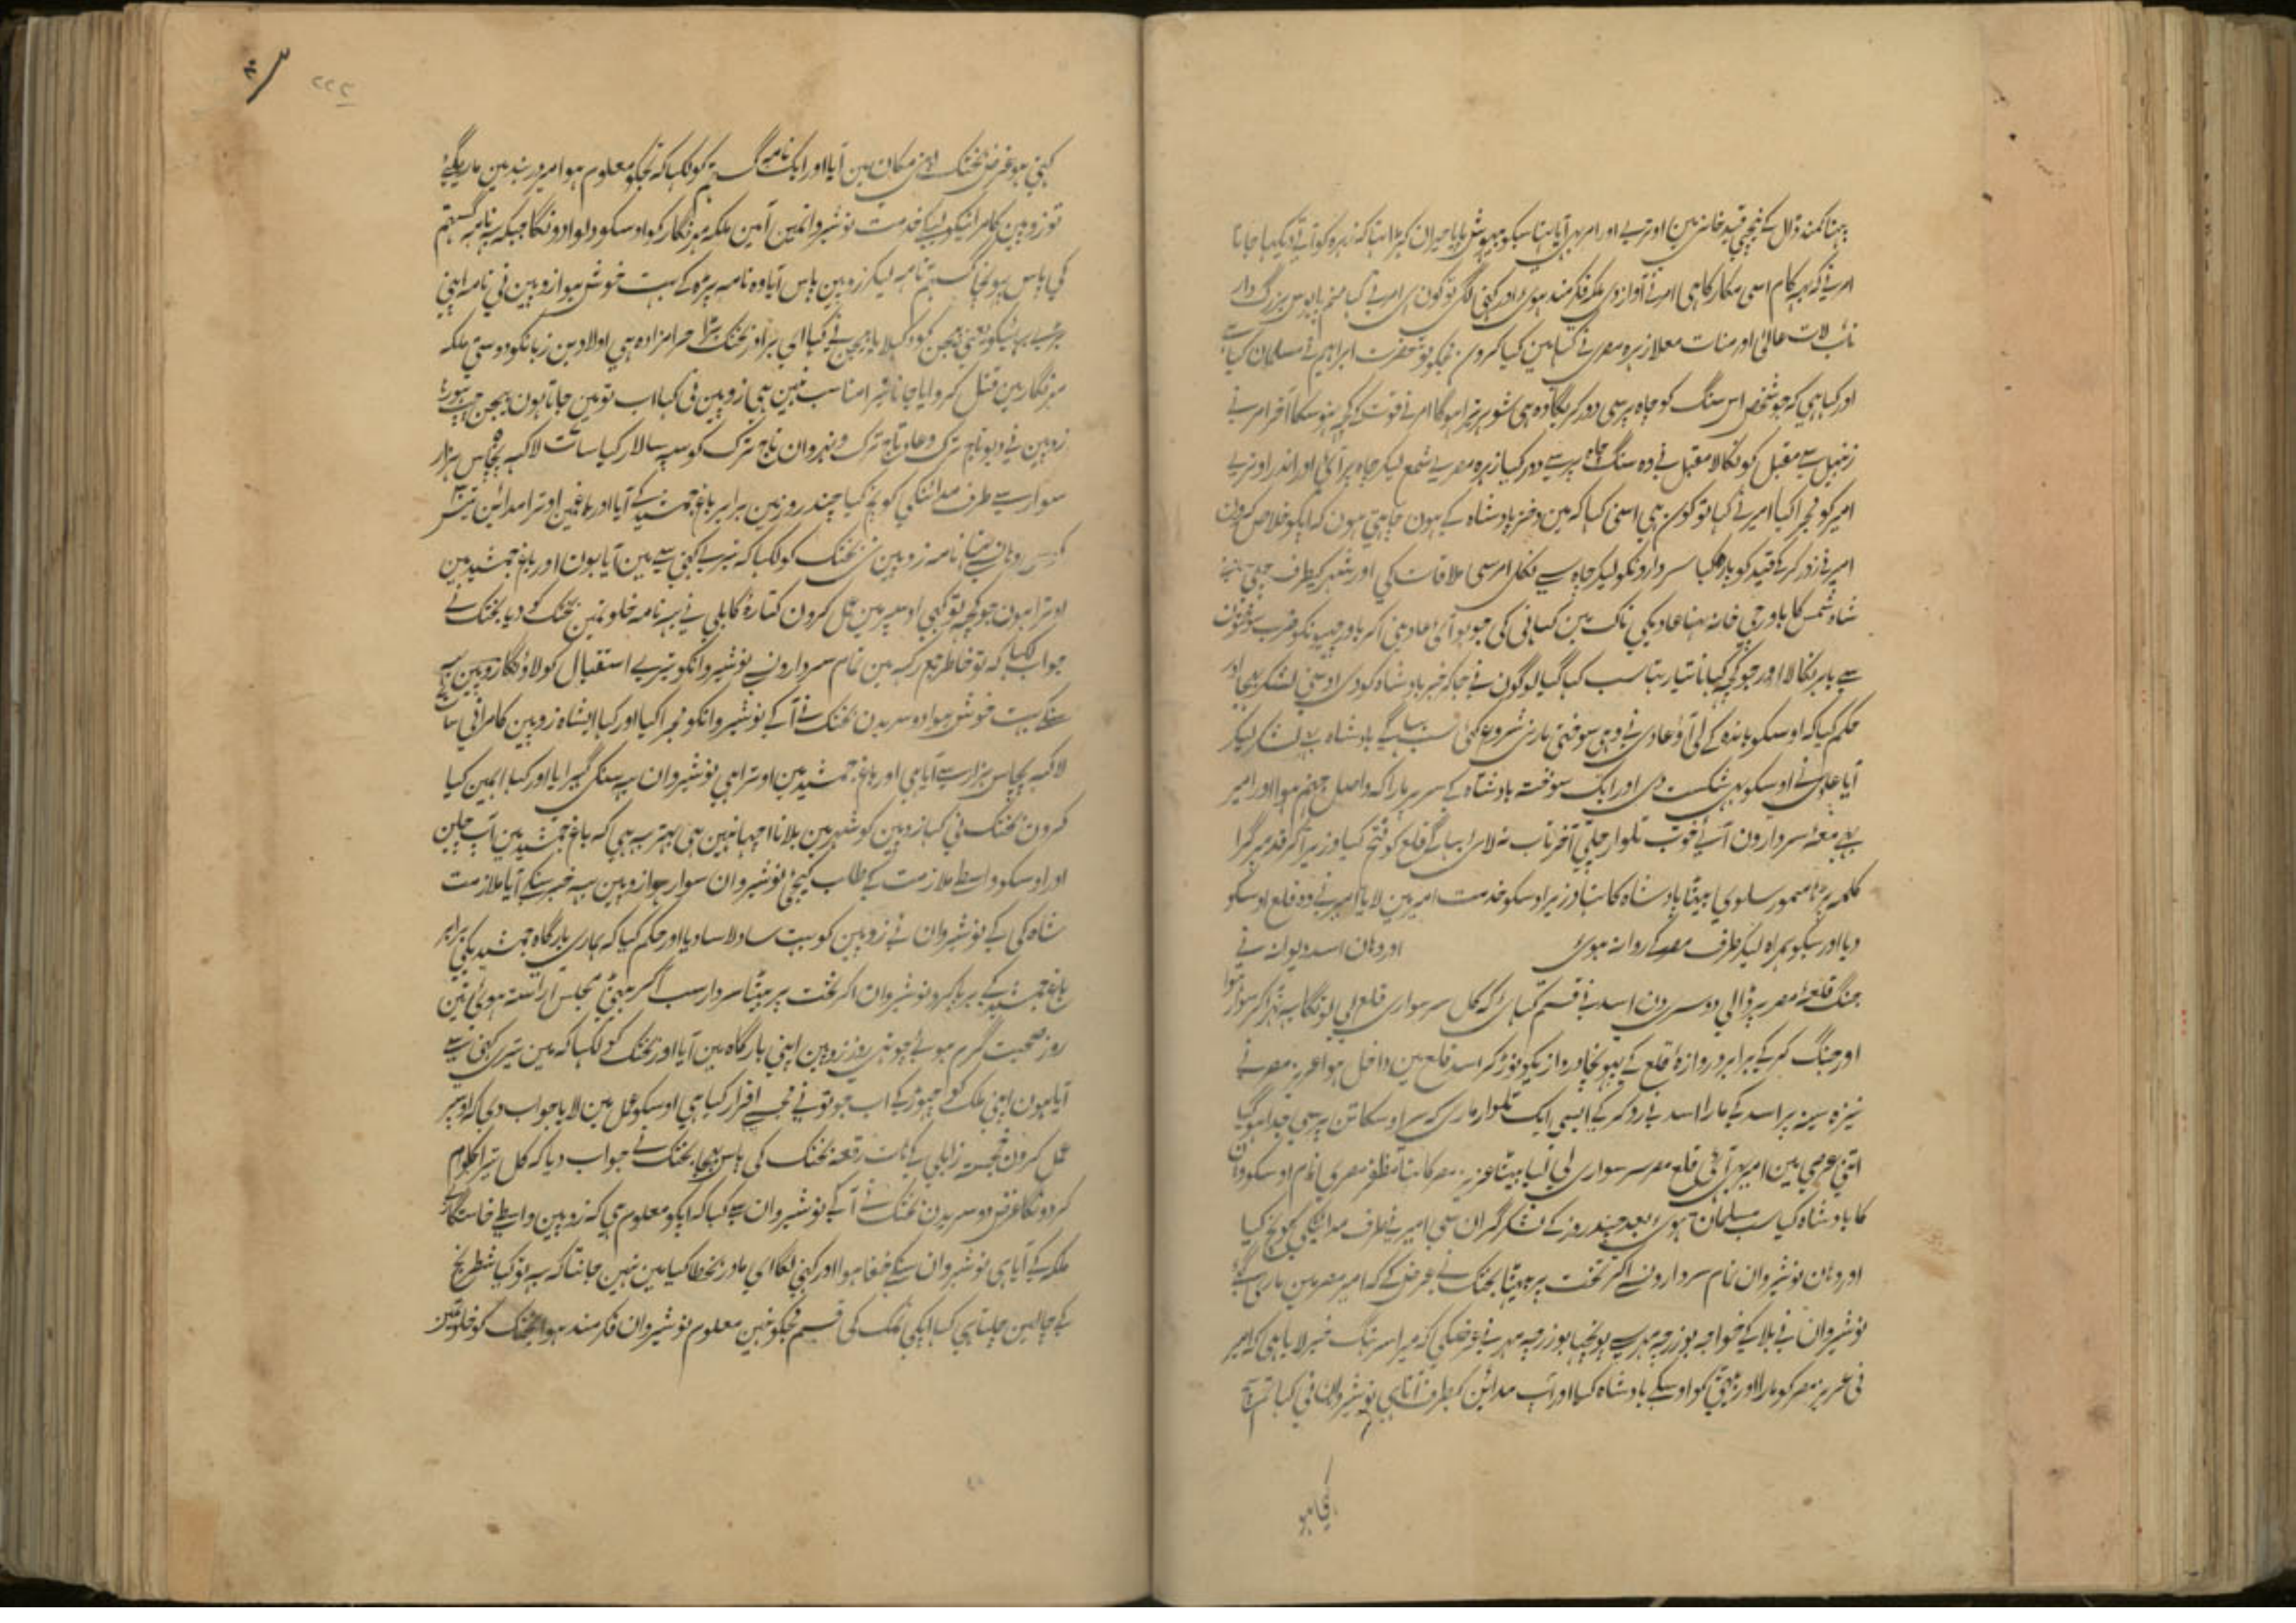 پہنا کمند ڈال کے نیچے قید خانہ مین اوترے اور امر بہر آیا سبکو بیہوش پایا حیران کہڑا تہا کہ زہرہ کو آتے دیکہا جانا
امر نے کہ یہہ کام اسی مکار کا ہی امر نے آواز دی ملکہ فکرمند ہوی اور کہنی لگی تو کون ہی امر نے کہا بزرگ وار
نائب لات عالی اور منات معلا زہرہ مصری نے کہا مین کیا کرون مجکو تو حضرت ابراہیم نے مسلمان کیا
اور کہا ہی کہ جو شخص اس سنگ کو چاہ پر سی دور کریگا وہ ہی شوہر تیرا ہوگا امر نے قوت کی کچہ نہو سکا آخر امر نے
زنبیل سے مقبل کو نکالا مقبل نے وہ سنگ چاہ پر سے دور کیا زہرہ مصری شمع لیکر چاہ پر آئی اور اندر اوتری
امیر کو مجرا کیا امیر نے کہا تو کون ہی اسنی کہا کہ مین دختر بادشاہ کے ہون چاہتی ہون کہ آپکو خلاص کرون
امیر نے زور کر کے قید کو پارہ کیا سردارونکو لیکر چاہ سے نکلی امر سی ملاقات کی اور شہر کیطرف چلی
شاہ شمس کا باورچی خانہ تہا عادیکی ناک مین کہانی کی جو بو آئی عادی نی اکر باورچیونکو ضرب سوختون
سے باہر نکالا اور جو کچہ کہانا تیار تہا سب کہا گیا لوگون نے جا کہ خبر بادشاہ کو دی اوسنی لشکر بہیجا اور
حکم کیا کہ اوسکو باندہ کے لی آؤ عادی نی وہی سوختی مارنی شروع کئی سب بہاگے بادشاہ لشکر لیکر
آیا عادی نے اوسکو بہی شکست دی اور ایک سوختہ بادشاہ کے سر پر مارا کہ واصل جہنم ہوا اور امیر
بہی معہ سردارون آئے خوب تلوار چلی آخر تاب نہ لای بہاگے قلع کو فتح کیا وزیر آکر قدم پر گرا
کلمہ پڑہا بیٹا بادشاہ کا تہا وزیر اوسکو خدمت امیر مین لایا امیر نے وہ قلع اوسکو
دیا اور سبکو ہمراہ لیکر طرف مصر کے روانہ ہوی اور وہان اسد دیوانہ نے
جنگ قلعہ مصر پر ڈالی دوسری دن اسد نے قسم کہای کہ کل سر سواری قلع لی لونگا یہہ کہکر سوار ہوا
اور جنگ کر کے برابر دروازۂ قلع کے پہونچا دروازیکو توڑ کر اسد قلع مین داخل ہوا عزیز مصر نے
نیزہ سینہ پر اسد کے مارا اسد نے رد کر کے ایسی ایک تلوار ماری کہ سر اوسکا تن پر سی جدا ہو گیا
اتنی عرصی مین امیر بہی آئی قلع مصر سر سواری لی لیا بیٹا عزیز مصر کا تہا مظفر مصری نام اوسکو وہان
کا بادشاہ کیا سب مسلمان ہوی بعد چند روز کے لشکر گران سی امیر نے طرف مداین کی کوچ کیا
اور وہان نوشیروان تمام سردارون سے اکر تخت پر بیٹہا بختک نے عرض کے کہ امیر مصر مین ماری گئے
نوشیروان نے بلا کے خواجہ بوزرجمہر سے پونچہا بوزرجمہر نے عرض کی کہ میرا سرہنگ خبر لایا ہی کہ امیر
نی عزیز مصر کو مارا اور بیٹی کو اوسکے بادشاہ کیا اور اب مداین کیطرف آتا ہی نوشیروان نی کہا تم سچے
کہتی ہو

۲۲۲
کہتی ہو غرض بختک اپنی مکان مین آیا اور ایک نامہ گستہم کو لکہا کہ تجکو معلوم ہوا امیر بند مین مارے گئے
تو زوبین کامرانیکو لیکے خدمت نوشیروانمین آ مین ملکہ مہرنگار کو اوسکو دلوا دونگا جبکہ یہ نامہ گستہم
کی پاس پہونچا گستہم نامہ لیکر زوبین پاس آیا وہ نامہ پڑہ کے بہت خوش ہوا زوبین نی نامہ اپنی
بڑے بہائیکو یعنی بہمن کو دکہلایا بہمن نے کہا ای برادر بختک بڑا حرامزادہ ہی اولاد بن زبانکو دوستی ملکہ
مہرنگار مین قتل کروایا جانا تیرا مناسب نہین ہی زوبین نی کہا اب تو مین جاتا ہون بہمن چپ ہو رہا
زوبین نے دیو نام ترک و عاد نام ترک و نہروان نام ترک کو سپہ سالار کیا سات لاکہہ پچاس ہزار
سوار سے طرف مداین کی کوچ کیا چند روز مین برابر باغ جمشید کے آیا اور باغمین اوترا مداین تین
کوس وہان سے تہا نامہ زوبین نی بختک کو لکہا کہ تیرے کہنی سے مین آیا ہون اور باغ جمشید مین
اوترا ہون جو کچہہ تو کہی اوسپر مین عمل کرون کتارۂ کابلی نے یہہ نامہ خلوتمین بختک کو دیا بختک نے
جواب لکہا کہ تو خاطر جمع رکہہ مین تمام سردارون سے نوشیروانکو تیرے استقبال کو لاؤنگا زوبین یہہ
سنکے بہت خوش ہوا دوسریدن بختک نے آ کے نوشیروانکو مجرا کیا اور کہا ای شاہ زوبین کامرانی سات
لاکہہ پچاس ہزار سے آیا ہی اور باغ جمشید مین اوترا ہی نوشیروان یہ سنکی گہبرایا اور کہا اب مین کیا
کرون بختک نی کہا زوبین کو شہر مین بلانا اچہا نہین ہی بہتر یہہ ہی کہ باغ جمشید مین آپ چلین
اور اوسکو واسطے ملازمت کے طلب کیجئے نوشیروان سوار ہوا زوبین یہہ خبر سنکے آیا ملازمت
شاہ کی کے نوشیروان نے زوبین کو بہت سا دلاسا دیا اور حکم کیا کہ ہماری بارگاہ جمشیدیکی برابر
باغ جمشید کے برپا کرو نوشیروان اکر تخت پر بیٹہا سردار سب آکر بیٹہی مجلس آراستہ ہوئی تین
روز صحبت گرم ہوئے چوتہی روز زوبین اپنی بارگاہ مین آیا اور بختک کو لکہا کہ مین تیری کہنی سے
آیا ہون اپنی ملک کو چہوڑ کے اب جو تونے مجسے اقرار کیا ہی اوسکو عمل مین لا یا جواب دی کہ اوسپر
عمل کرون خجستہ زابلی کے ہات رقعہ بختک کی پاس بہیجا بختک نے جواب دیا کہ کل تیرا کلام
کر دونگا غرض دوسریدن بختک نے آ کے نوشیروان سے کہا کہ آپکو معلوم ہی کہ زوبین واسطے خاستگاری
ملکہ کے آیا ہی نوشیروان سنکے خفا ہوا اور کہنی لگا ای مادر بخطا کیا مین نہین جانتا کہ یہہ تو کیا شطرنج
کے چالین چلتا ہی کہا آپکی نمک کی قسم مجکو نہین معلوم نوشیروان فکرمند ہوا بختک کو خلوتمین